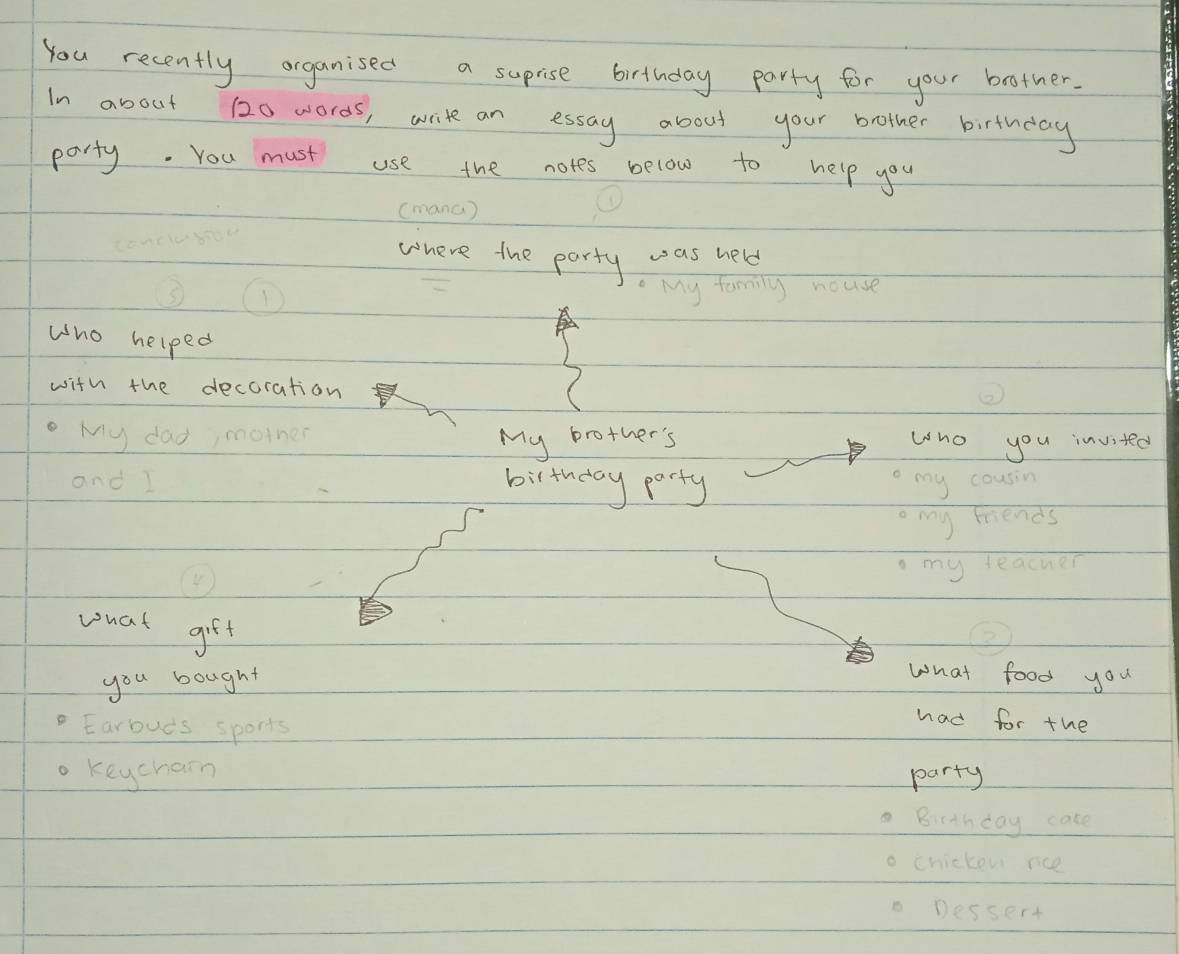 You recently organised a suprise birthday party for your brother.
In about 120 words, write an essay about your brother birthday
party. You must use the notes below to help you
(mana) 1
conclusion
where the party was held
• My family house
3 1
who helped
with the decoration
• My dad, mother
and I
My brother's
birthday party
2
who you invited
• my cousin
• my friends
• my teacher
4
what gift
you bought
• Earbuds sports
• Keychain
3
what food you
had for the
party
• Birthday cake
• chicken rice
• Dessert